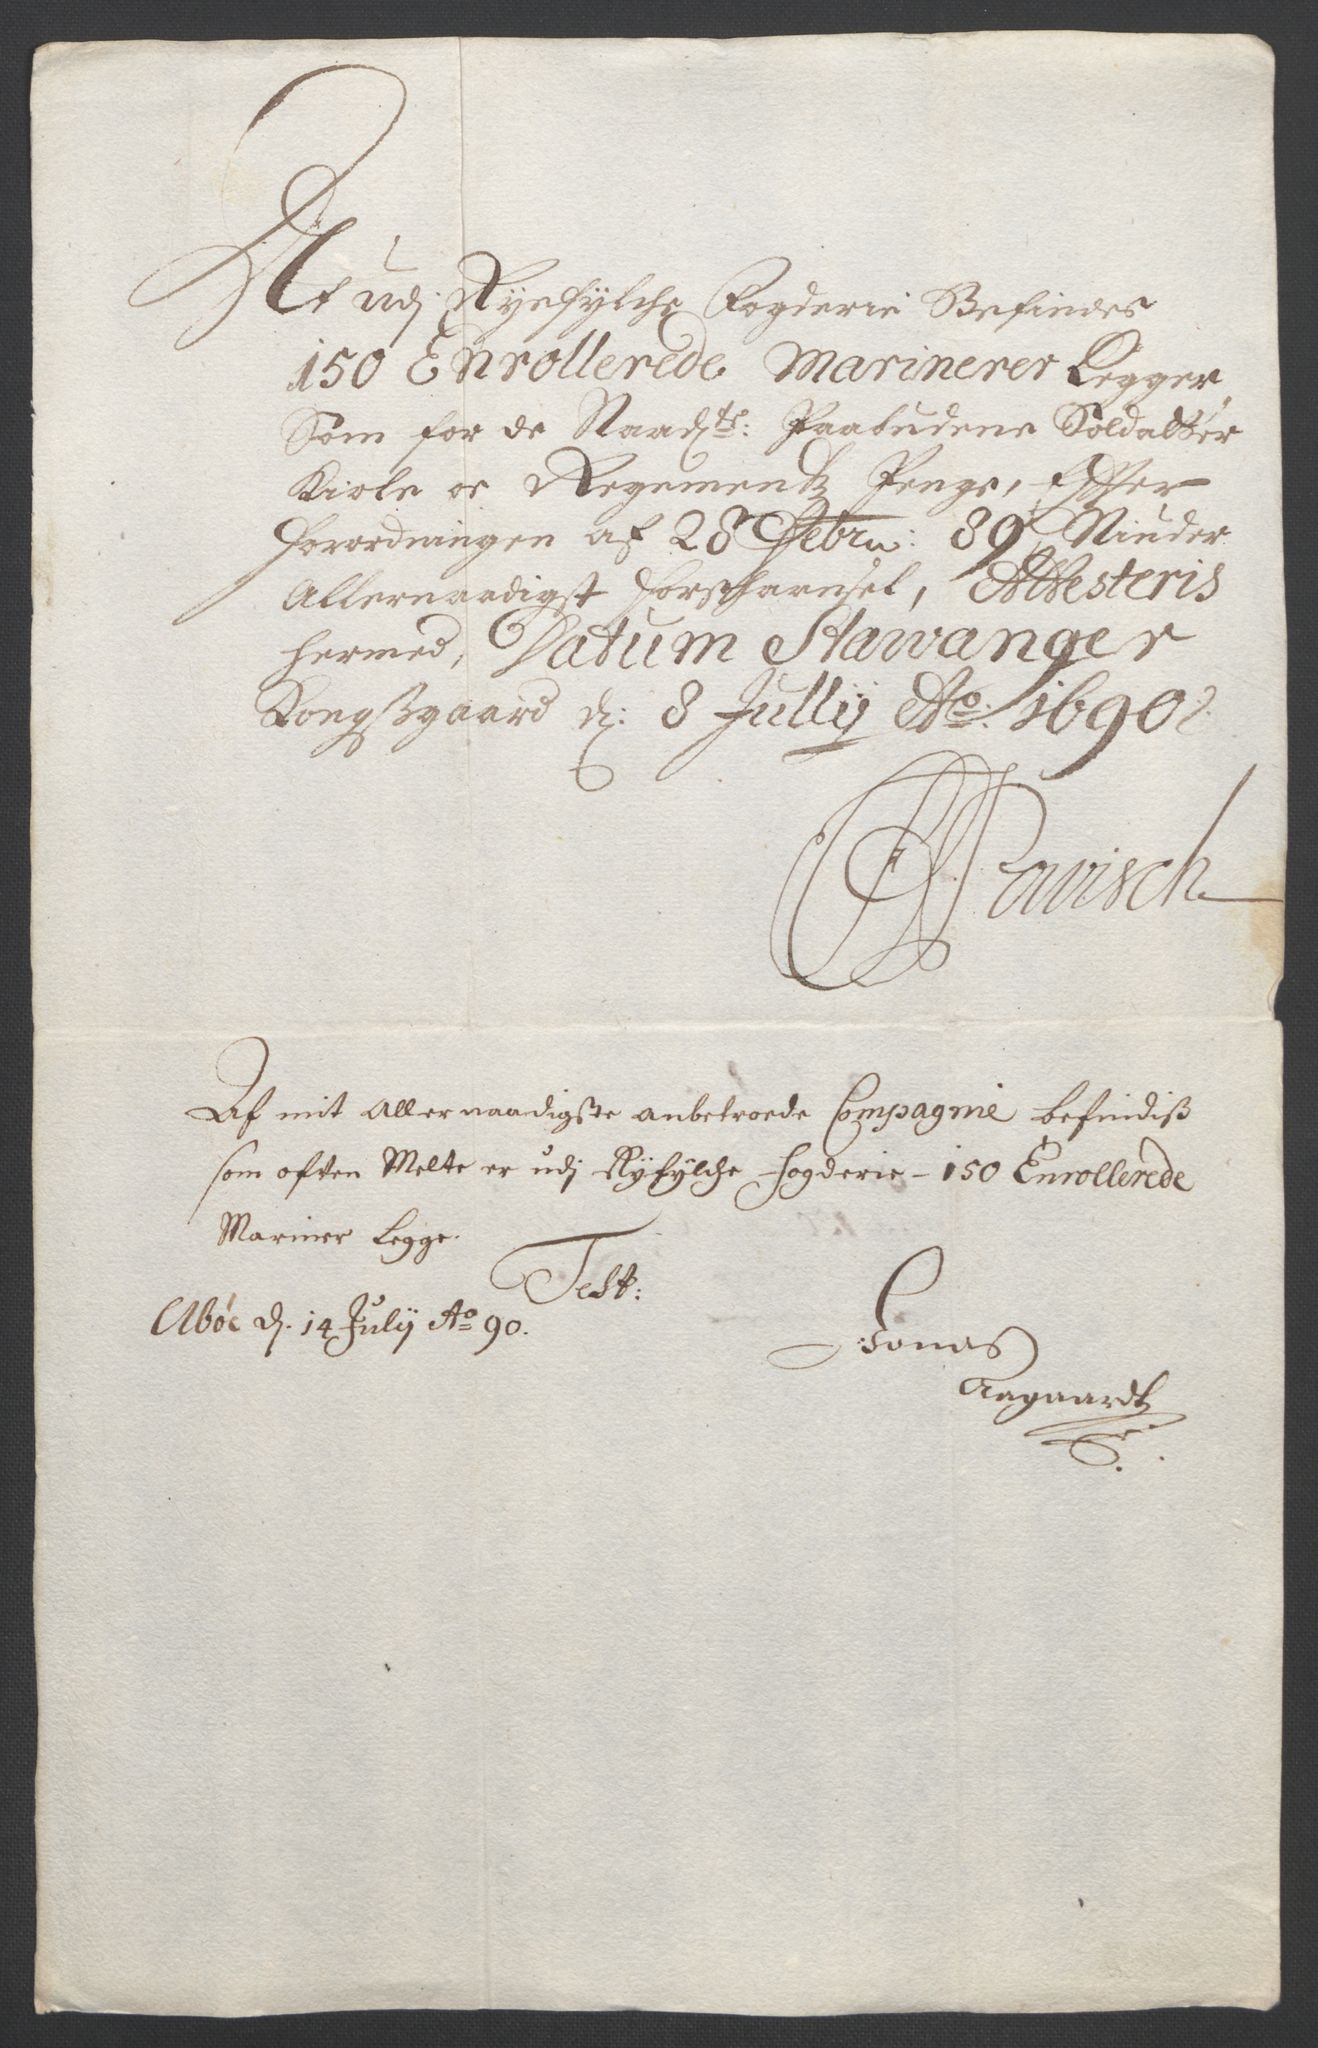 At udj Ryefylche Fogderie Befindes
150 Enrollerede Mariner Legger,
Som for de Naadste: Paabudene Soldatter
Kiole oc Regementz Penge, Efter
forordningen af 28 Febru: 89 Niuder
Allernaadigst forskaansel, Attesteris
hermed, Datum Stawanger
Kongsgaard d: 8 Jullij Ao: 1690
Af mit allernaadigste anbetroede Compagnie befindiß
som often Melte er udj Ryfylche fogderie - 150 Enrollerede
Mariner Legge.
Test:
Abøe d. 14 Julij Ao 90.
Jonas
Aagaardt